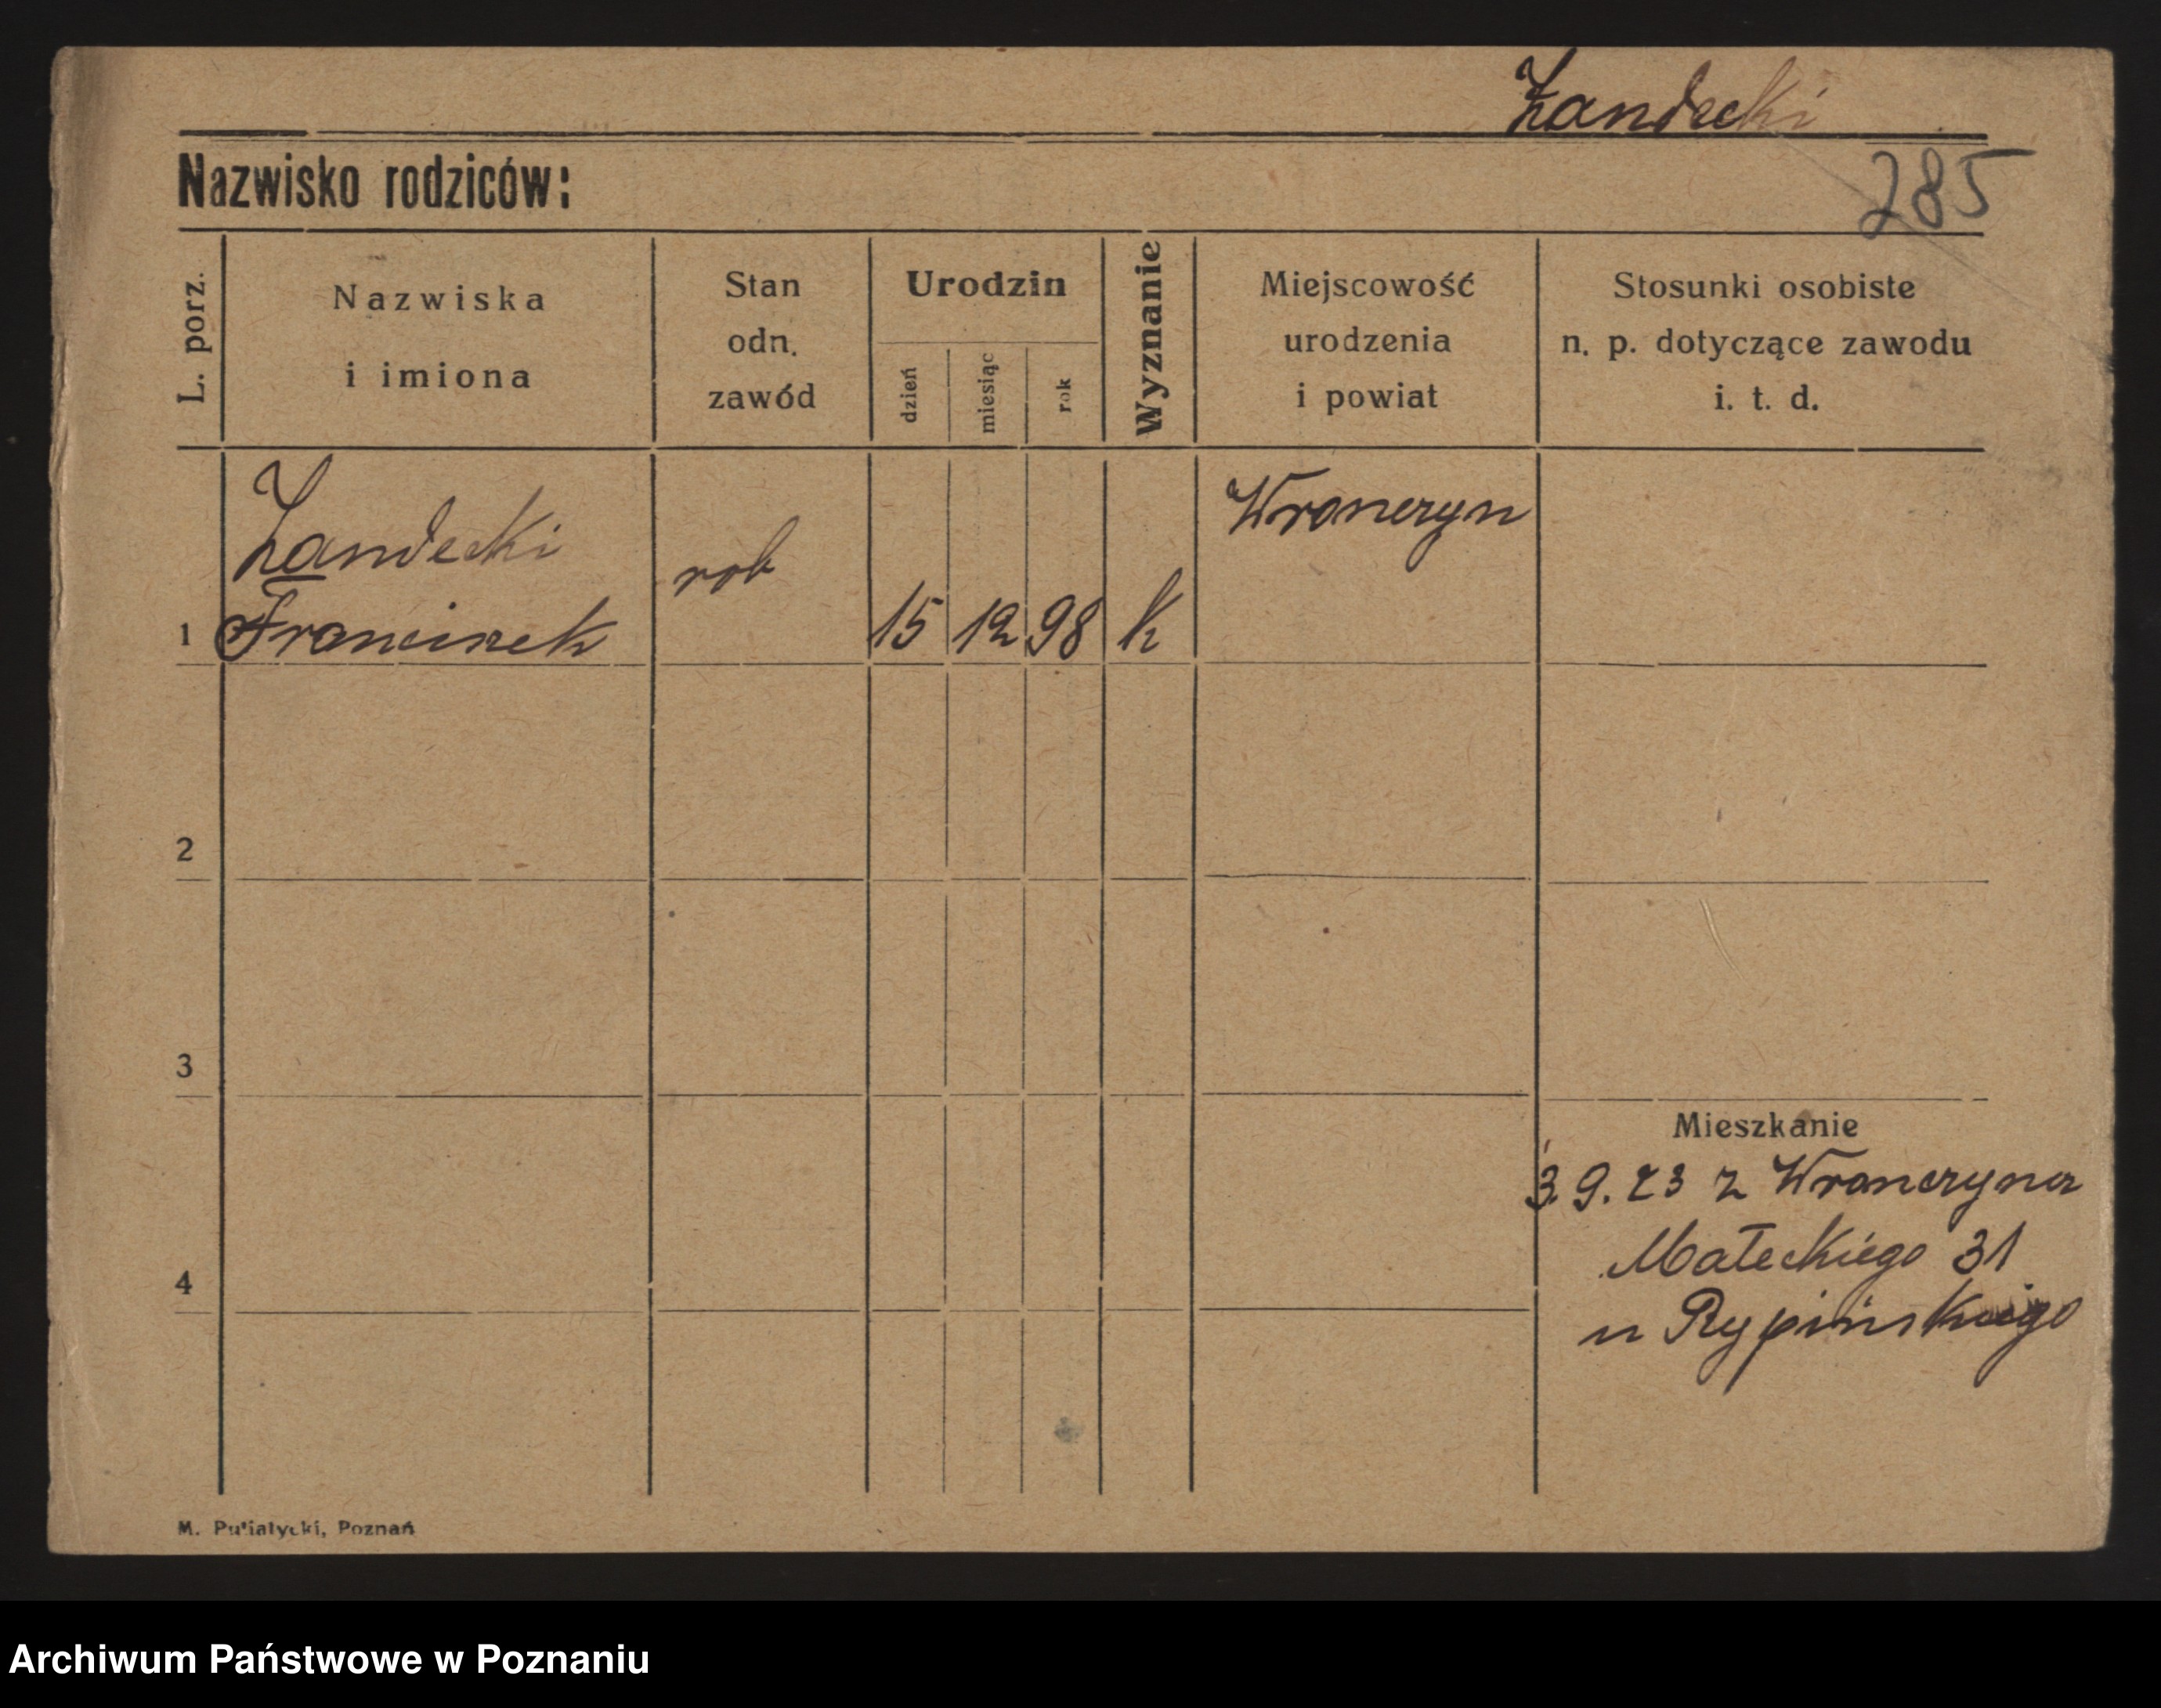 Żandecki
Nazwisko rodziców:
285
L. porz.
Nazwiska
i imiona
Stan
odn.
zawód
Urodzin
dzień
miesiąc
rok
Wyznanie
Miejscowość
urodzenia
i powiat
Stosunki osobiste
n. p. dotyczące zawodu
i. t. d.
Żandecki
Franciszek
rob
1
15 12 98 k
Wronczyn
2
3
4
Mieszkanie
3.9.23 z Wronczyna
Małeckiego 31
u Rypińskiego
M. Putiatycki, Poznań
Archiwum Państwowe w Poznaniu